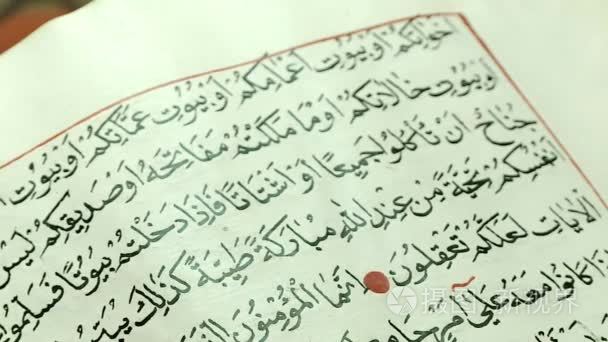 اَخَوَاتِكُمْ اَوْ بُيُوتِ اَعْمَامِكُمْ اَوْ بُيُوتِ عَمَّاتِكُمْ اَوْ بُيُوتِ
اَوْ بُيُوتِ خَالَاتِكُمْ اَوْ مَا مَلَكْتُمْ مَفَاتِحَهُ اَوْ صَدِيقِكُمْ لَيْسَ
جُنَاحٌ اَنْ تَاْكُلُوا جَمِيعًا اَوْ اَشْتَاتًا فَاِذَا دَخَلْتُمْ بُيُوتًا فَسَلِّمُوا
اَنْفُسِكُمْ تَحِيَّةً مِنْ عِنْدِ اللهِ مُبَارَكَةً طَيِّبَةً كَذٰلِكَ
الْاٰيَاتِ لَعَلَّكُمْ تَعْقِلُونَ اِنَّمَا الْمُؤْمِنُونَ
كَانُوا مَعَهُ عَلٰى
新视界